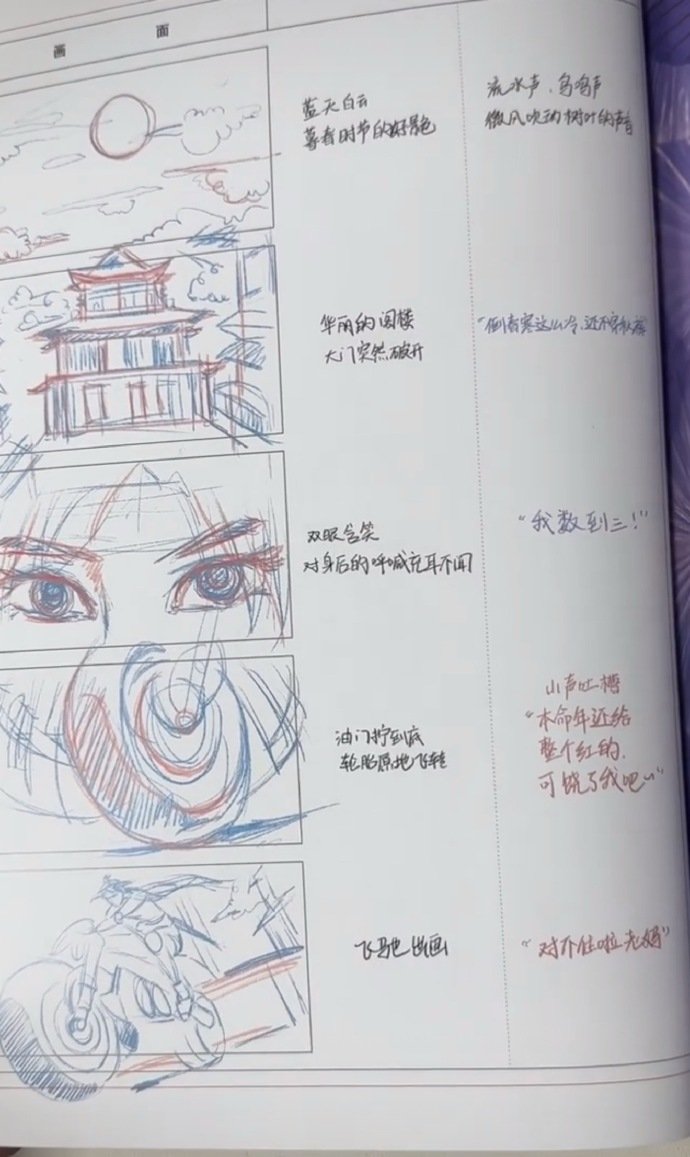 画 面
蓝天白云
暮春时节的好景色
流水声、鸟鸣声
微风吹动树叶的声音
华丽的阁楼
大门突然破开
"倒春寒这么冷,还不穿秋裤
双眼含笑
对身后的呼喊充耳不闻
"我数到三!"
油门拧到底
轮胎原地飞转
小声吐槽
"本命年还给
整个红的,
可饶了我吧~"
飞驰出画
"对不住啦老妈"